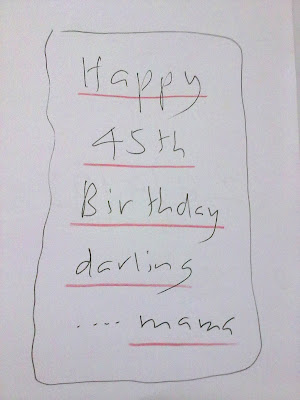 Happy
45th
Birthday
darling
.... mama